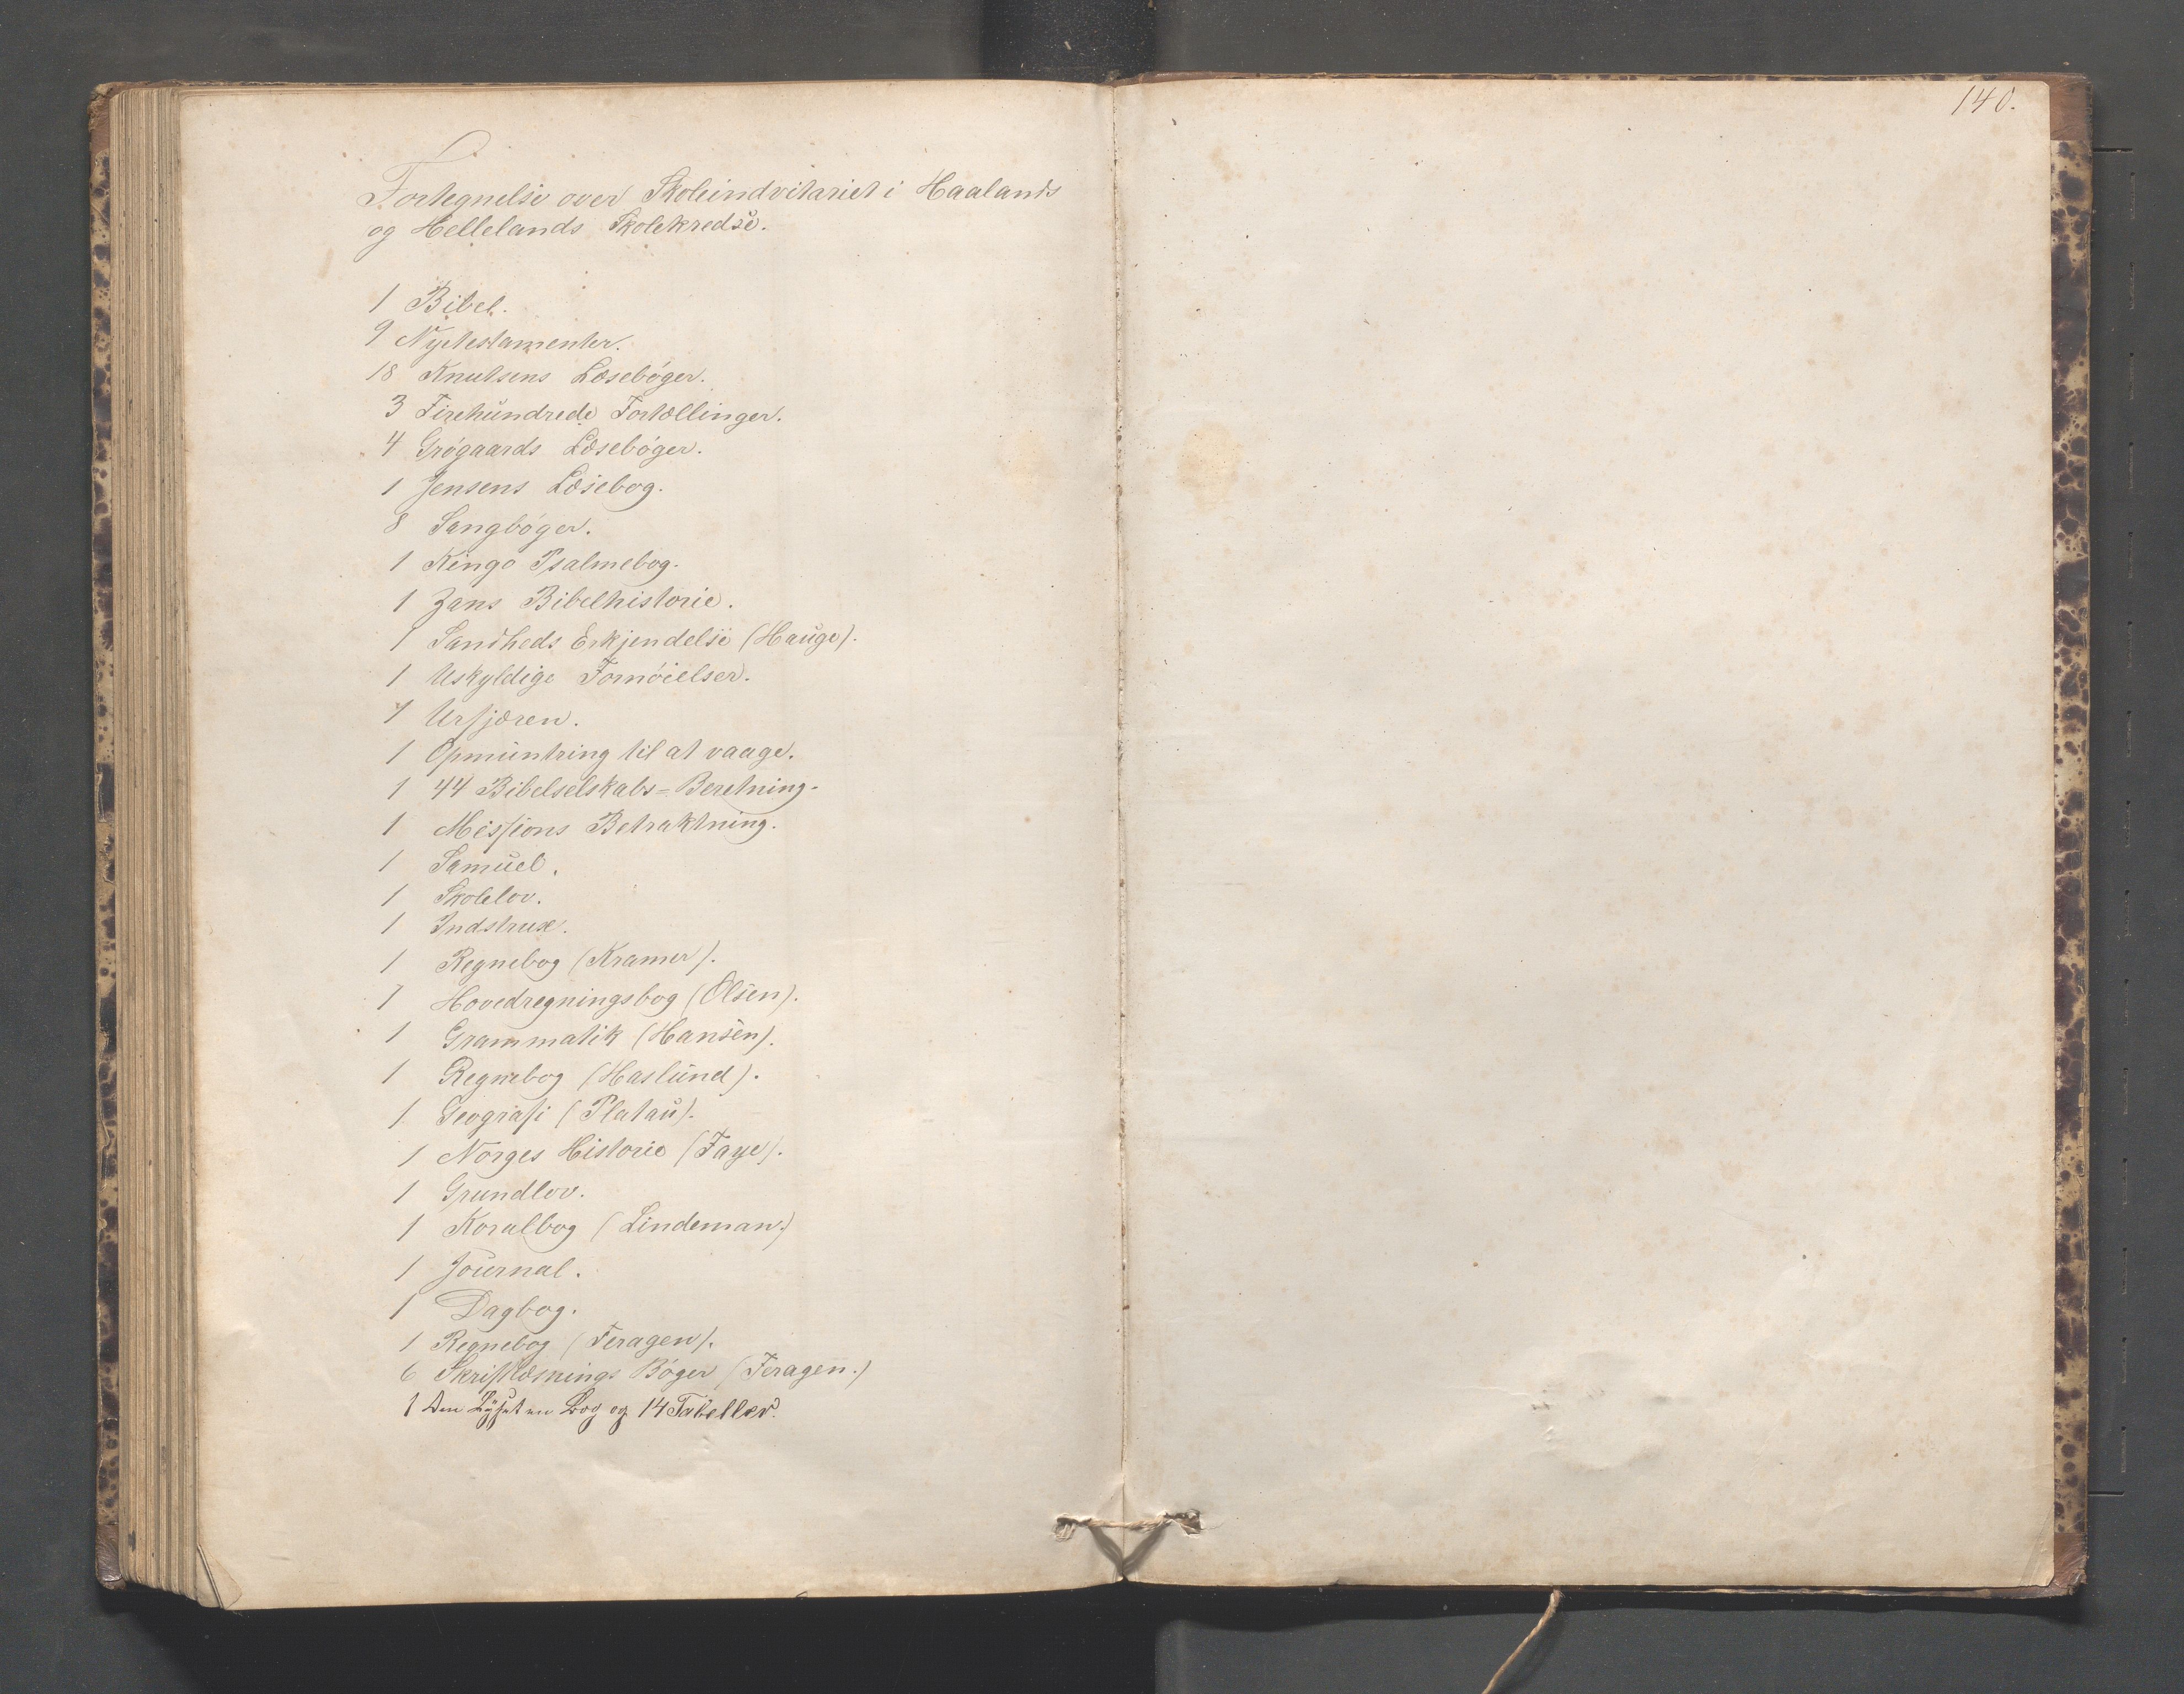 140.
Fortegnelse over Skoleindvitariet i Haalands
og Hellelands Skolekredse.
1 Bibel.
9 Nyetestamenter.
18 Knutsens Læsebøger.
3 Firehundrede Fortællinger.
4 Grøgaards Læsebøger.
1 Jensens Læsebog.
8 Sangbøger.
1 Kingo Psalmebog.
1 Zans Bibelhistorie.
1 Sandheds Erkjendelse (Hauge).
1 Uskyldige Fornøielser.
1 Opmuntring til at vaage.
1 44 Bibelselskabs=Beretning.
1 Missions Betraktning.
1 Samuel.
1 Skolelov.
1 Indstrux.
1 Regnebog (Kramer).
1 Hovedregningsbog (Olsen).
1 Grammatik (Hansen).
1 Regnebog (Haslund).
1 Geografi (Platau).
1 Norges Historie (Faye).
1 Grundlov.
1 Koralbog (Lindeman.)
1 Journal.
1 Dagbog.
1 Regnebog (Feragen).
6 Skriftlæsnings Bøger (Feragen.)
1 en Bog og 14 Tabeller.